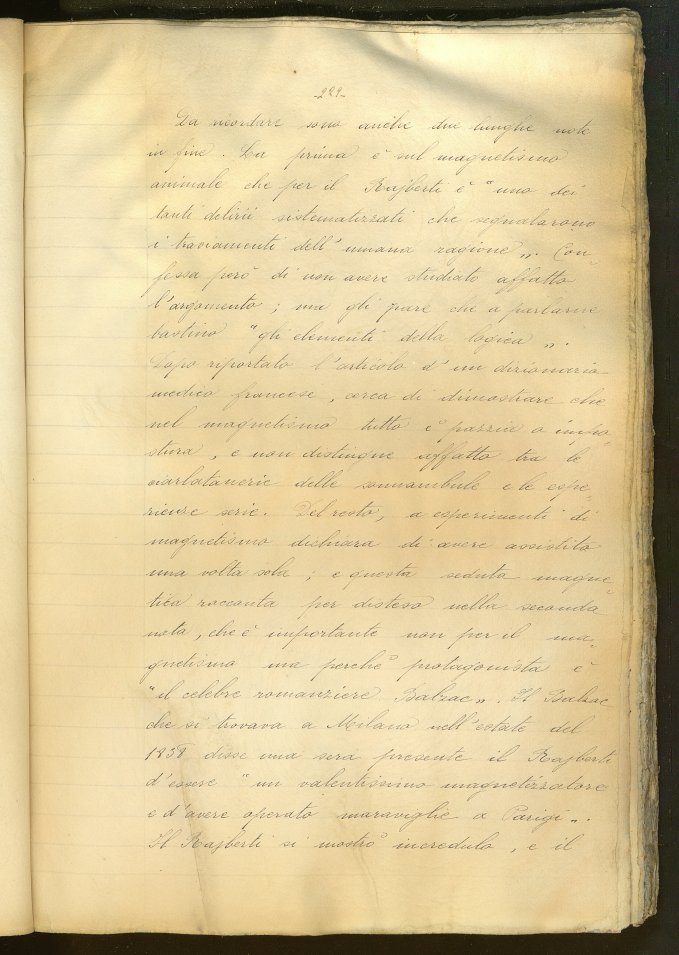 -221-
Da ricordare sono anche due lunghe note
in fine. La prima è sul magnetismo
animale che per il Rajberti è "uno dei
tanti delirii sistematizzati che segnalarono
i traviamenti dell'umana ragione„. Con-
fessa però di non avere studiato affatto
l'argomento; ma gli pare che a parlarne
bastino "gli elementi della logica„.
Dopo riportato l'articolo d'un dizionario
medico francese, cerca di dimostrare che
nel magnetismo tutto è pazzia o impo-
stura, e non distingue affatto tra le
ciarlatanerie delle sonnambule e le espe-
rienze serie. Del resto, a esperimenti di
magnetismo dichiara di avere assistito
una volta sola; e questa seduta magne-
tica racconta per disteso nella seconda
nota, che è importante non per il ma-
gnetismo ma perchè protagonista è
"il celebre romanziere Balzac„. Il Balzac
che si trovava a Milano nell'estate del
1838 disse una sera presente il Rajberti
d'essere "un valentissimo magnetizzatore
e d'avere operato maraviglie a Parigi„.
Il Rajberti si mostrò incredulo, e il